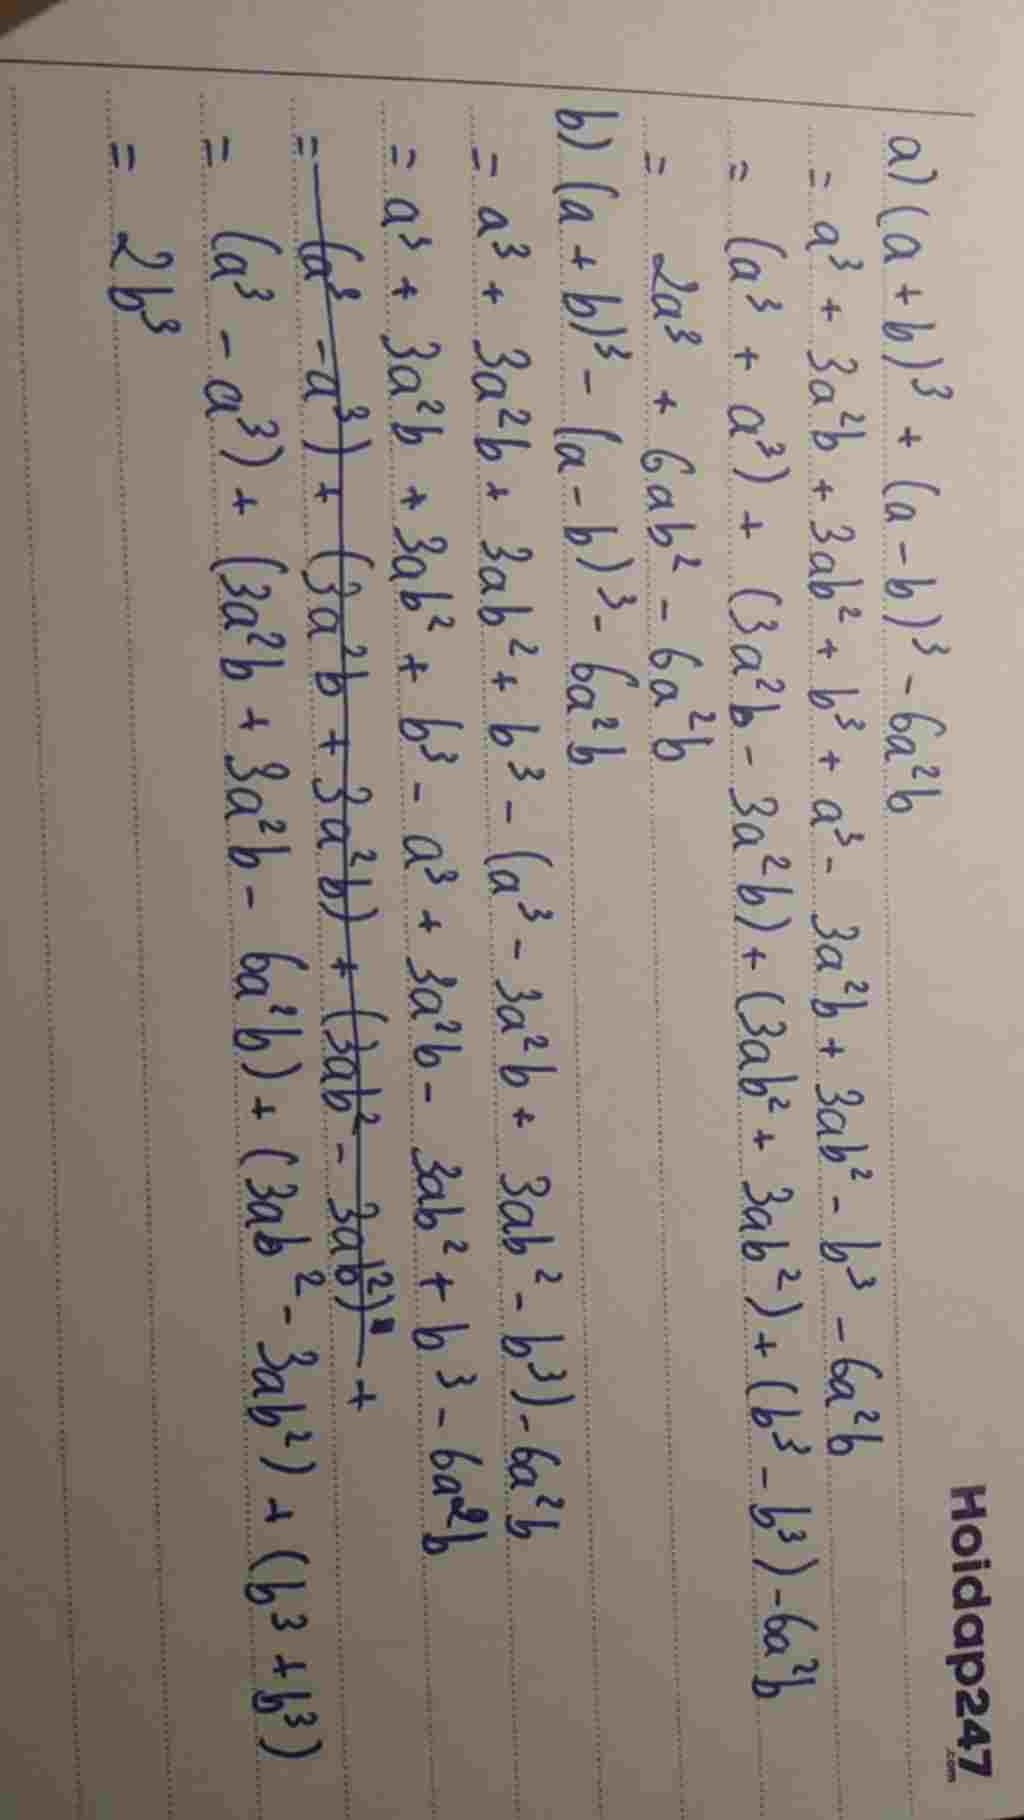 Hoidap247
.com
a) (a + b)³ + (a - b)³ - 6a²b
= a³ + 3a²b + 3ab² + b³ + a³ - 3a²b + 3ab² - b³ - 6a²b
= (a³ + a³) + (3a²b - 3a²b) + (3ab² + 3ab²) + (b³ - b³) - 6a²b
= 2a³ + 6ab² - 6a²b
b) (a + b)³ - (a - b)³ - 6a²b
= a³ + 3a²b + 3ab² + b³ - (a³ - 3a²b + 3ab² - b³) - 6a²b
= a³ + 3a²b + 3ab² + b³ - a³ + 3a²b - 3ab² + b³ - 6a²b
= (a³ - a³) + (3a²b + 3a²b) + (3ab² - 3ab²) +
= (a³ - a³) + (3a²b + 3a²b - 6a²b) + (3ab² - 3ab²) + (b³ + b³)
= 2b³